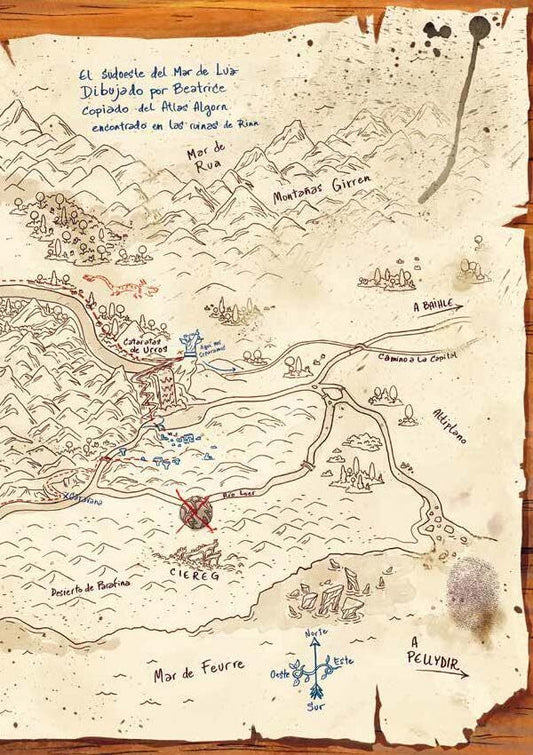 El sudoeste del Mar de Lua
Dibujado por Beatrice
Copiado del Atlas Algorn
encontrado en las ruinas de Rinn
Mar de
Rua
Montañas Girren
A BAIHLE
Cataratas
de Urros
Aquí nos
separamos
Camino a La Capital
Altiplano
X Caravana
Río Luer
CIEREG
Desierto de Parafina
Mar de Feurre
Norte
Oeste
Este
Sur
A
PELLYDIR